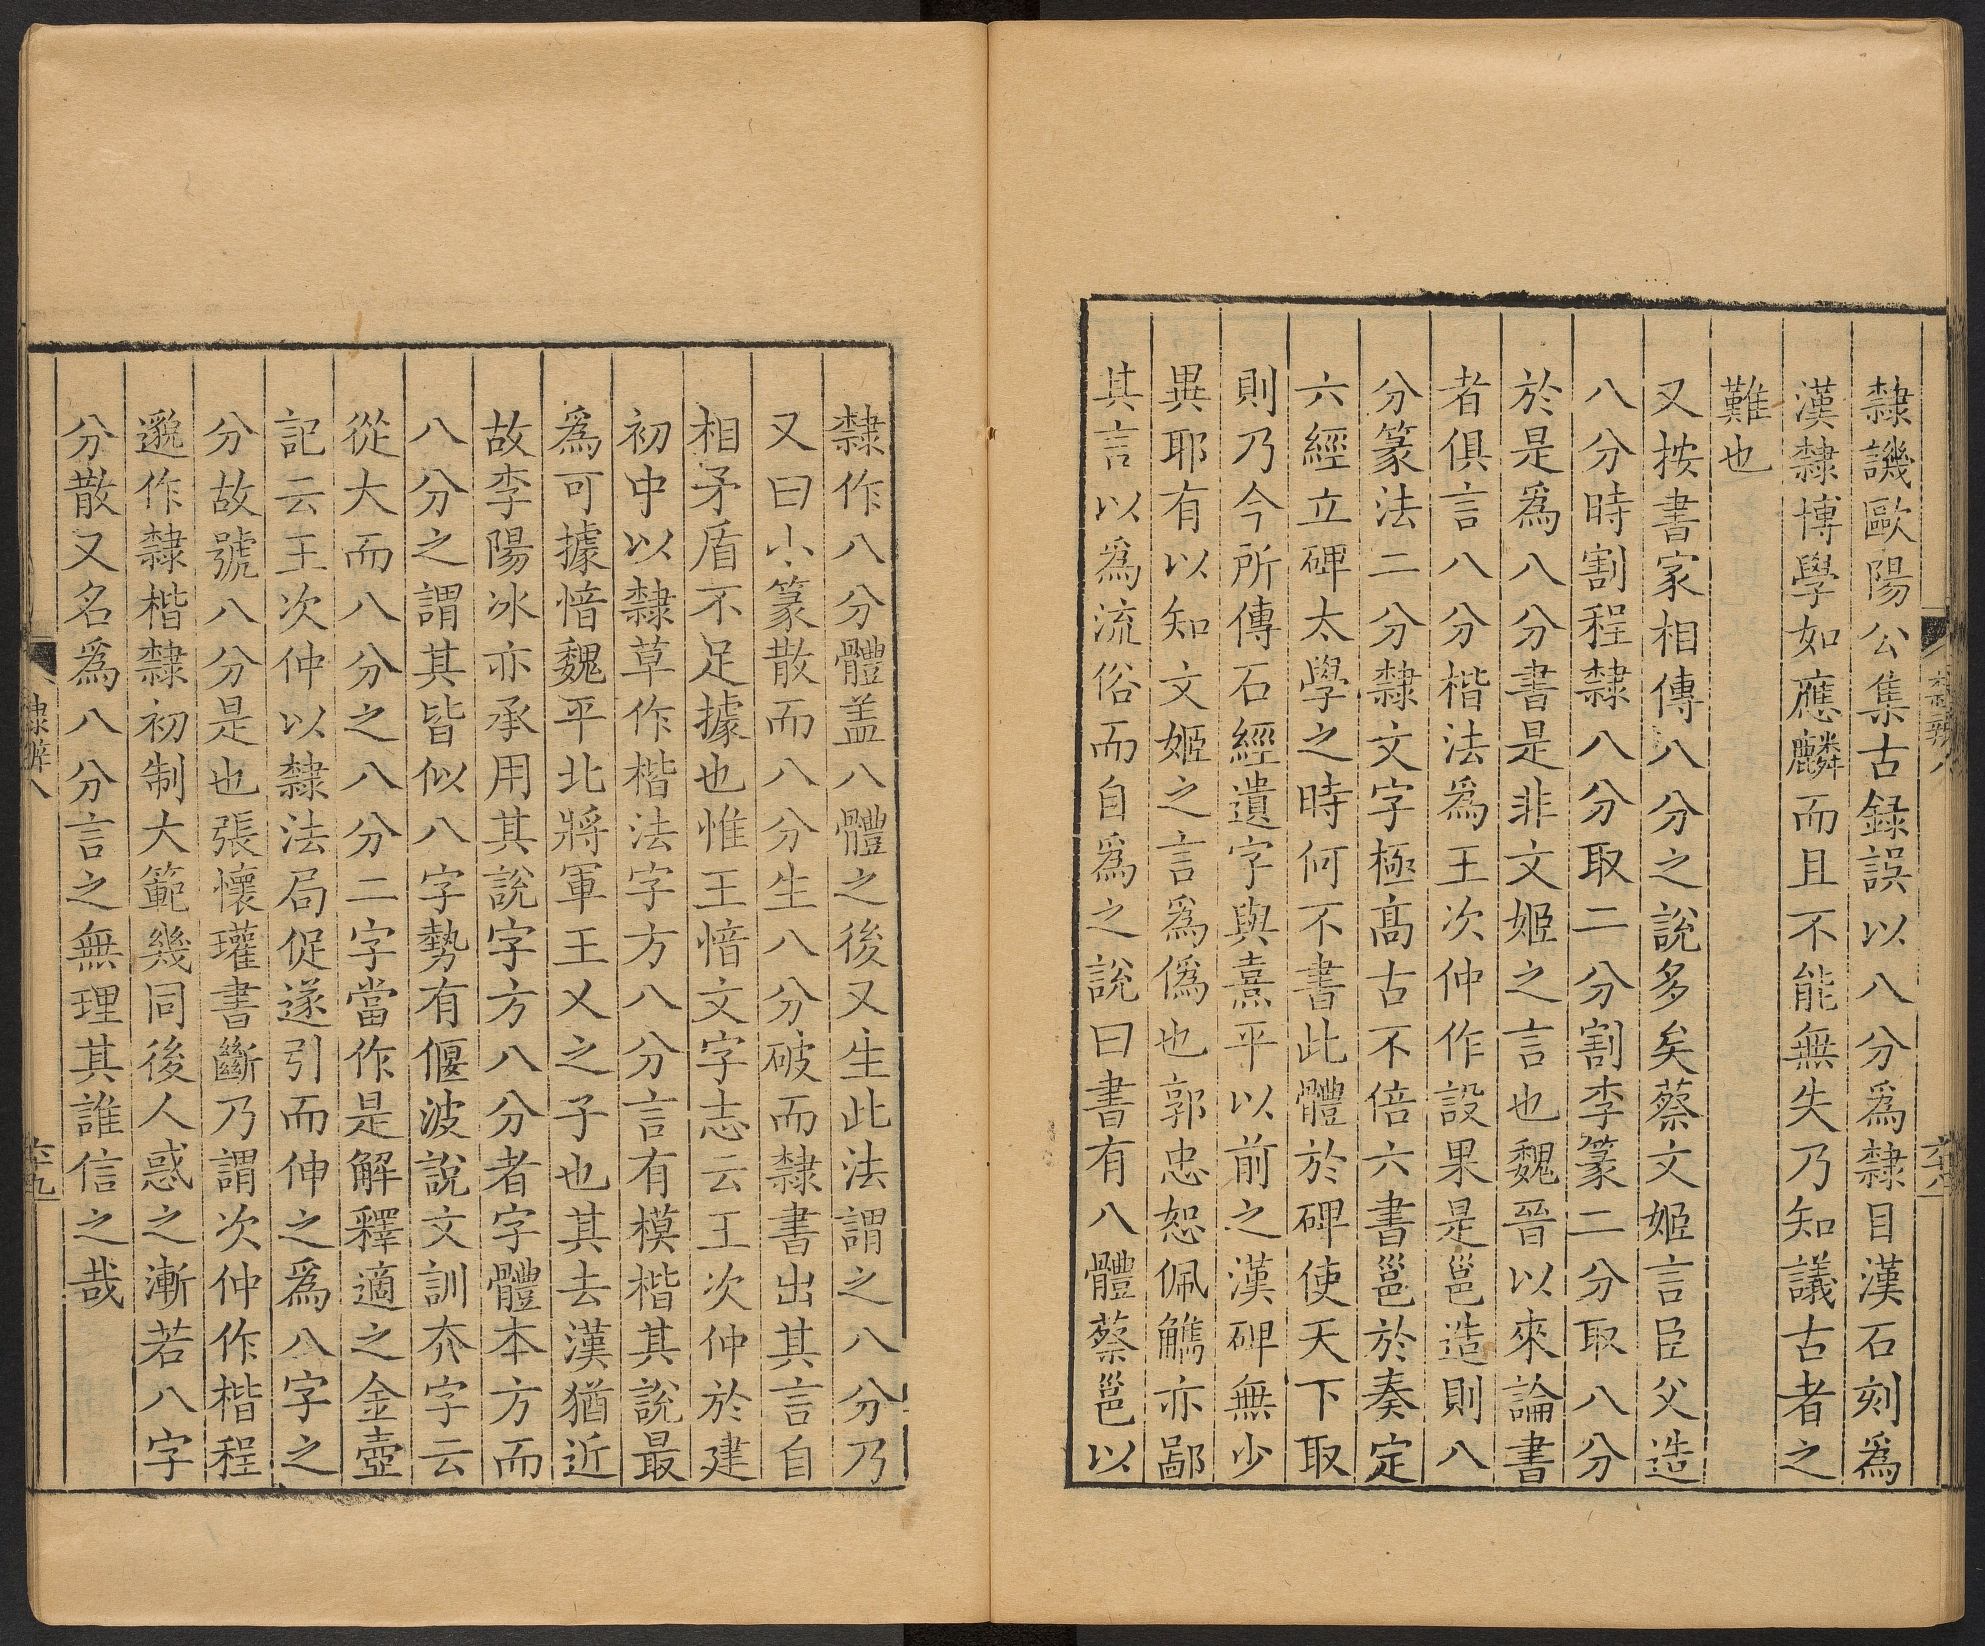 隸譏歐陽公集古録誤以八分爲隸目漢石刻爲
漢隸博學如應麟而且不能無失乃知議古者之
難也
又按書家相傳八分之說多矣蔡文姬言臣父造
八分時割程隸八分取二分割李篆二分取八分
於是爲八分書是非文姬之言也魏晉以來論書
者俱言八分楷法爲王次仲作設果是邕造則八
分篆法二分隸文字極高古不倍六書邕於奏定
六經立碑太學之時何不書此體於碑使天下取
則乃今所傳石經遺字與熹平以前之漢碑無少
異耶有以知文姬之言爲僞也郭忠恕佩觿亦鄙
其言以爲流俗而自爲之說曰書有八體蔡邕以
隸作八分體盖八體之後又生此法謂之八分乃
又曰小篆散而八分生八分破而隸書出其言自
相矛盾不足據也惟王愔文字志云王次仲於建
初中以隸草作楷法字方八分言有模楷其說最
爲可據愔魏平北將軍王乂之子也其去漢猶近
故李陽冰亦承用其說字方八分者字體本方而
八分之謂其皆似八字勢有偃波說文訓夰字云
從大而八分之八分二字當作是解釋適之金壺
記云王次仲以隸法局促遂引而伸之爲八字之
分故號八分是也張懷瓘書斷乃謂次仲作楷程
邈作隸楷隸初制大範幾同後人惑之漸若八字
分散又名爲八分言之無理其誰信之哉
隸辨八
六十九